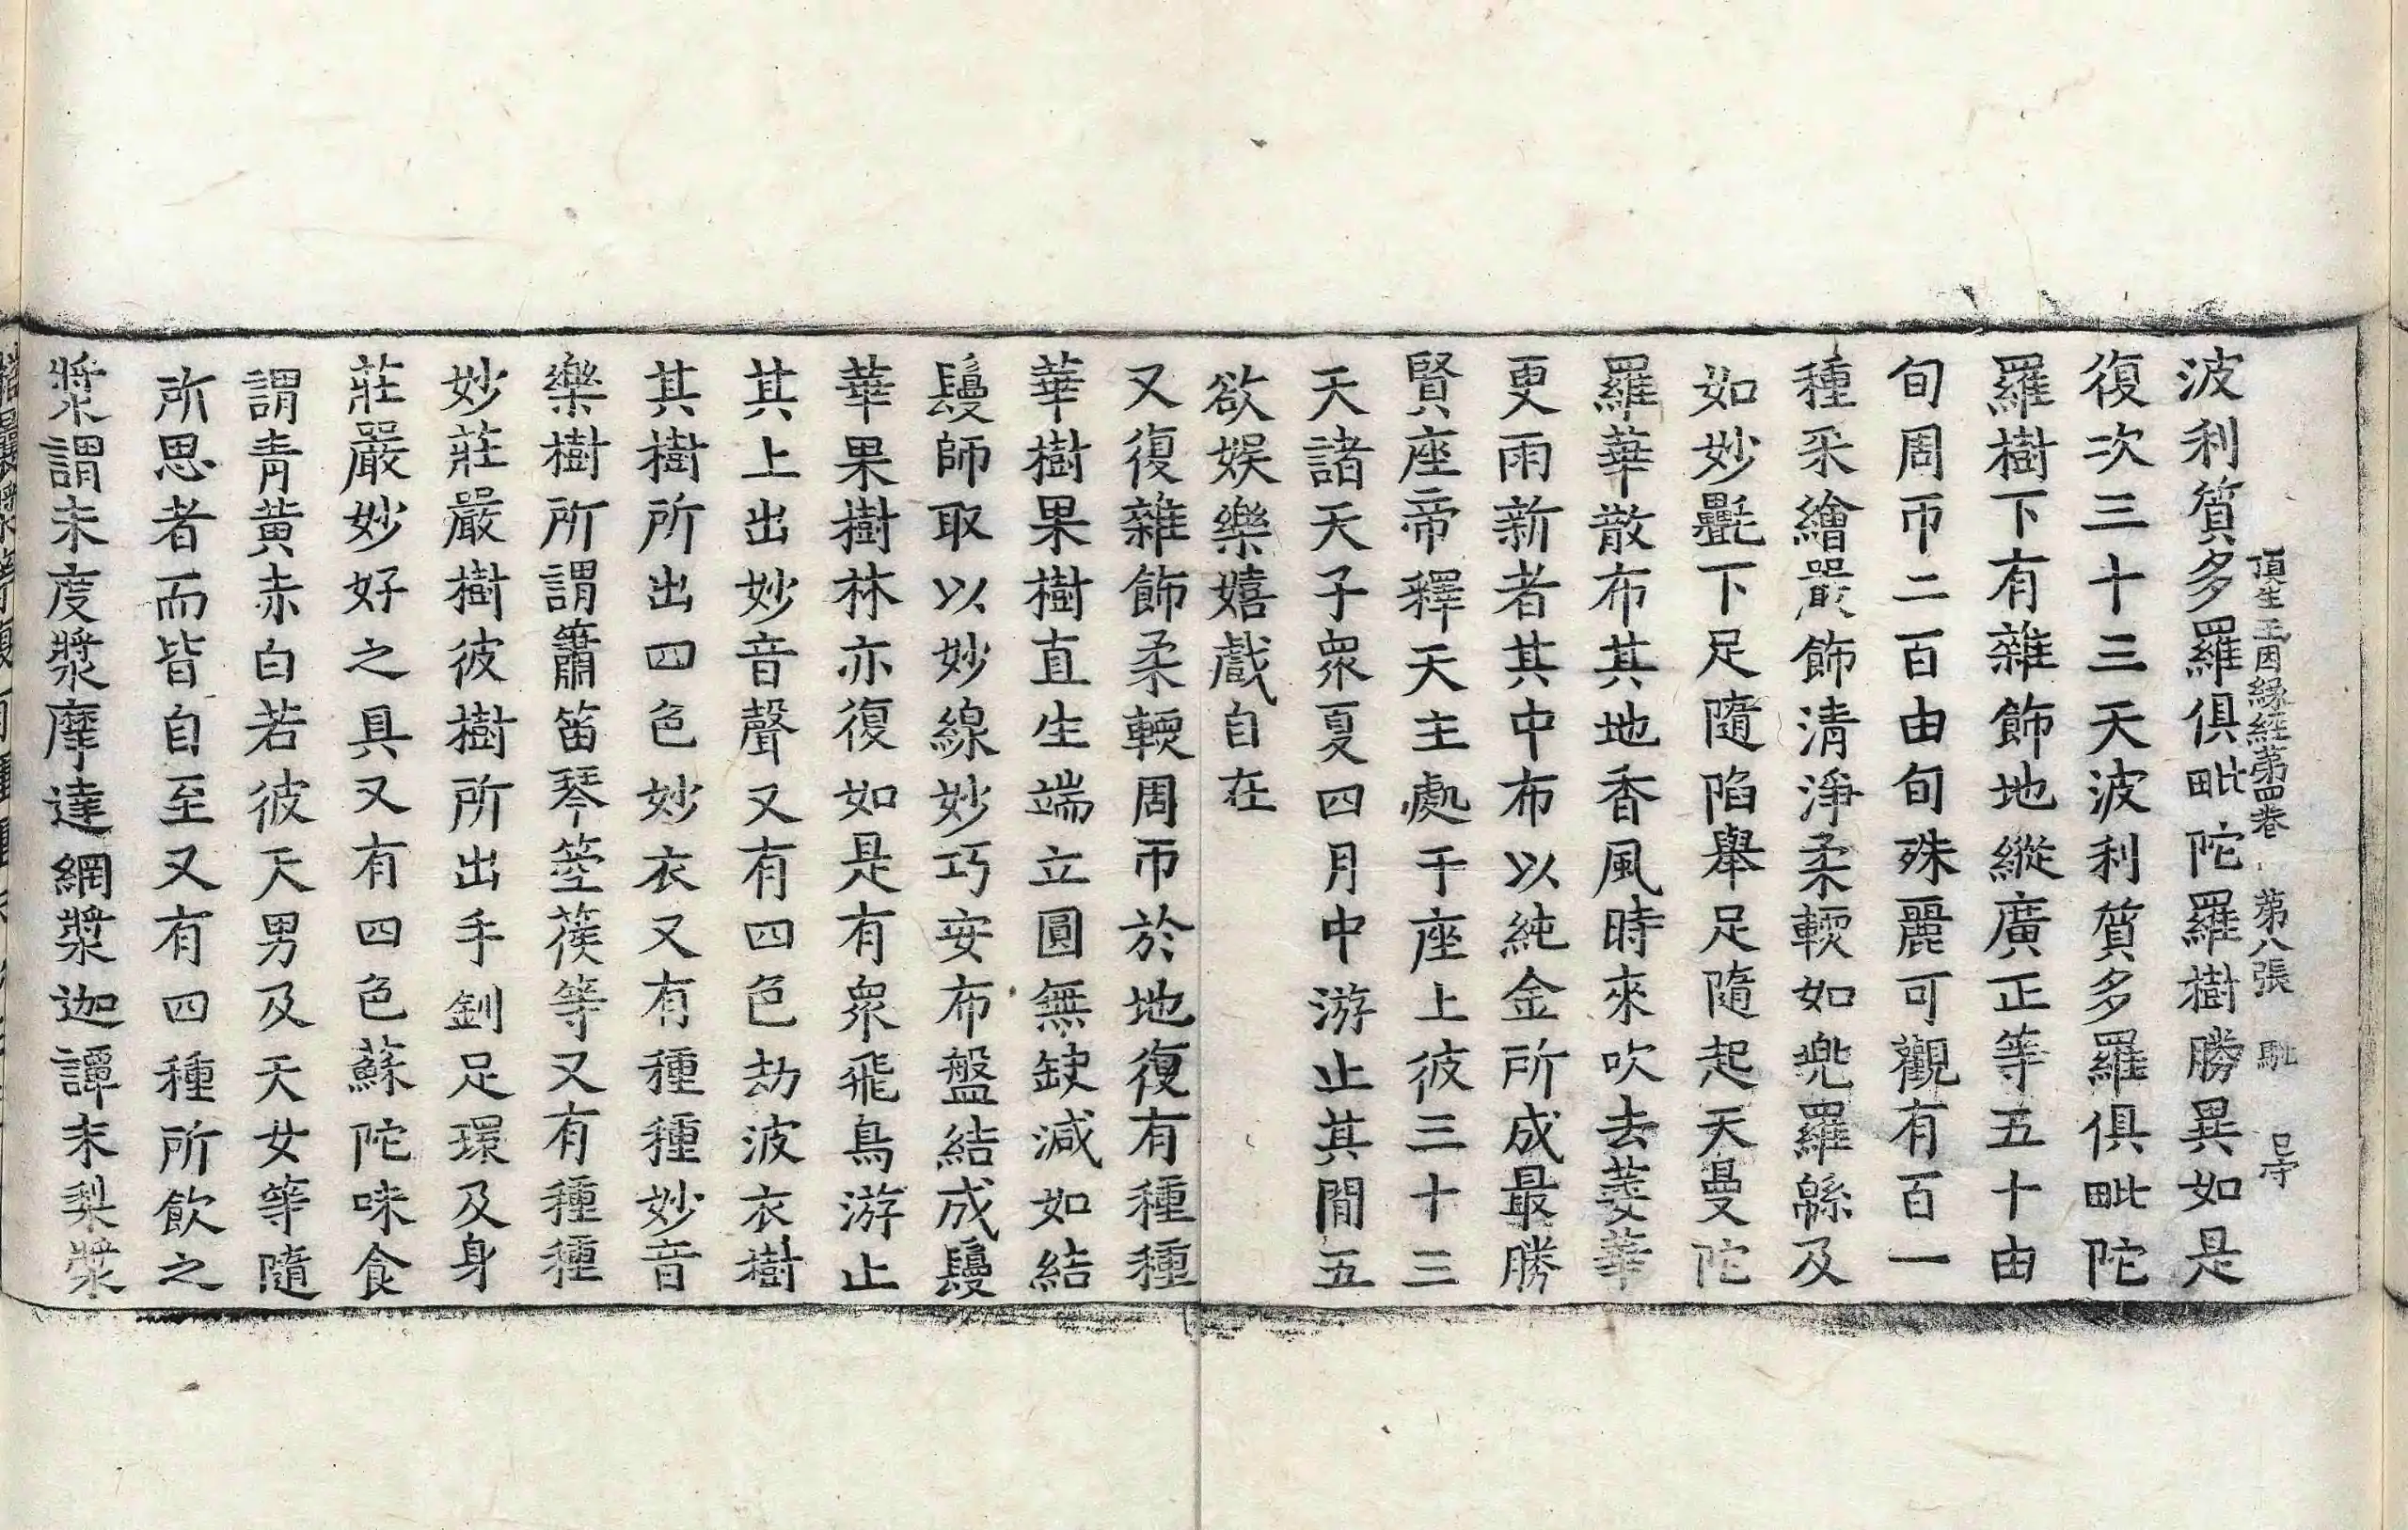 頂生王因緣經第四卷 第八張 馳
波利質多羅俱毗陀羅樹勝異如是
復次三十三天波利質多羅俱毗陀
羅樹下有雜飾地縱廣正等五十由
旬周帀二百由旬殊麗可觀有百一
種采繪嚴飾清淨柔輭如兜羅緜及
如妙㲲下足隨陷舉足隨起天曼陀
羅華散布其地香風時來吹去萎華
更雨新者其中布以純金所成最勝
賢座帝釋天主處于座上彼三十三
天諸天子衆夏四月中游止其間五
欲娛樂嬉戲自在
又復雜飾柔輭周帀於地復有種種
華樹果樹直生端立圓無缺減如結
鬘師取以妙線妙巧安布盤結成鬘
華果樹林亦復如是有衆飛鳥游止
其上出妙音聲又有四色劫波衣樹
其樹所出四色妙衣又有種種妙音
樂樹所謂簫笛琴箜篌等又有種種
妙莊嚴樹彼樹所出手釧足環及身
莊嚴妙好之具又有四色蘇陀味食
謂青黃赤白若彼天男及天女等隨
所思者而皆自至又有四種所飲之
漿謂末度漿摩達網漿迦譚末梨漿